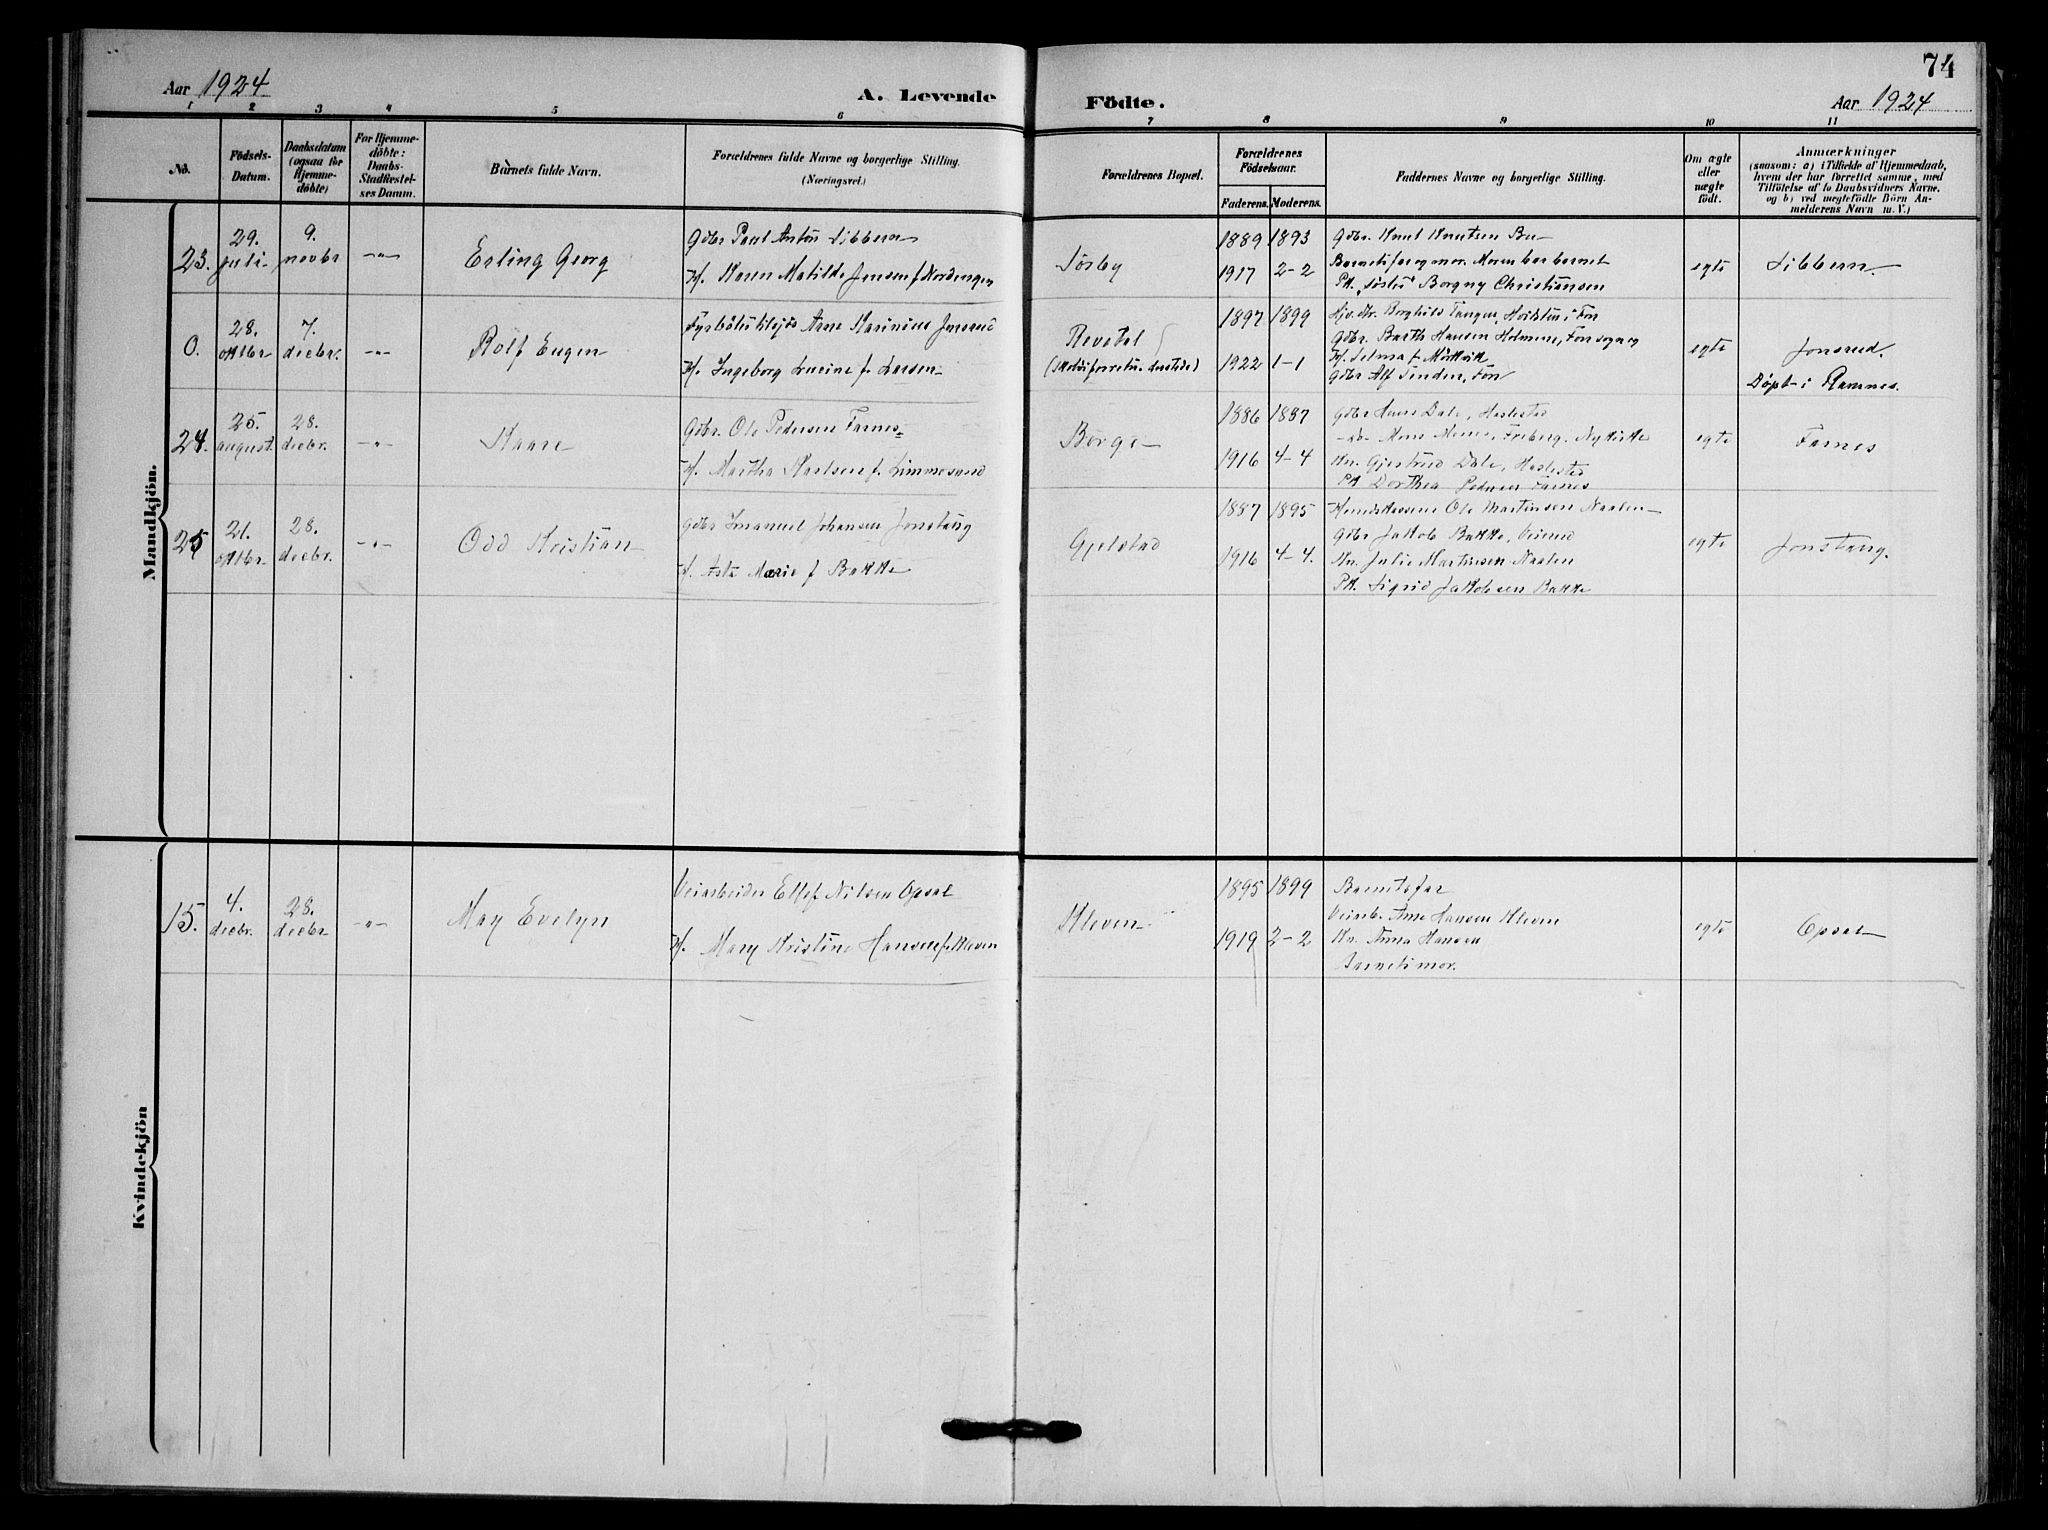 74
Aar 1924
A. Levende
Födte.
Aar 1924
1 2 3 4 5 6 7 8 9 10 11
No.
Födsels-
Datum.
Daabsdatum
(ogsaa for
Hjemme-
döbte)
For Hjemme-
döbte:
Daabs-
Stadfæstel-
ses Datum.
Barnets fulde Navn.
Forældrenes fulde Navne og borgerlige Stilling.
(Næringsvei.)
Forældrenes Bopæl.
Forældrenes
Födselsaar.
Faderens. Moderens.
Faddernes Navne og borgerlige Stilling.
Om ægte
eller
uægte
födt.
Anmærkninger
(saasom: a) i Tilfælde af Hjemmedaab,
hvem der har forrettet samme, med
Tilföielse af to Daabsvidners Navne,
og b) ved uægtefödte Börn An-
melderens Navn m. V.)
Mandkjön.
23.
29.
juli
9.
novbr
-"-
Erling Georg
Gdbr Paul Anton Sibbern
H. Karen Matilde Jensen f Nordengen
Sørby
1889 1893
1917 2-2
Gdbr. Knut Knutsen Bu
Barnets far og mor. Moren bar barnet
Pk. Borgny Christiansen
egte
Sibbern
0.
28.
oktbr
7.
decbr.
-"-
Rolf Eugen
Arne Marinius Jonsrud
H. Ingeborg Lucine f. Larsen
Revetal
1897 1899
1922 1-1
Borghild Tangen, i Fon
Gdbr. Barth Hansen Holmene, Fon sogn
H. Selma f
Gdbr Alf Linden, Fon
egte
Jonsrud.
Døpt i Ramnes.
24.
25.
august.
28.
decbr.
-"-
Kaare
Gdbr. Ole Pedersen Farnes
H. Martha Karlsen f. Limmesand
Borge
1886 1887
1916 4-4
Gdbr Hans Dale, Haslestad
Kn. Gjertrud Dale, Haslestad
Pk Dorthea Pedersen Farnes
egte
Farnes
25
21.
oktbr.
28.
decbr.
-"-
Odd Kristian
Gdbr Imanuel Johansen Jonstang
H. Asta Marie f Bakke
Gjelstad
1887 1895
1916 4-4.
Ole Martinsen Naalen
Gdbr Jakob Bakke,
Kn. Julie Martinsen Naalen
Pk. Sigrid Jakobsen Bakke
egte
Jonstang.
Kvindekjön
15.
4.
decbr.
28.
decbr
-"-
May Evelyn
Veiarbeider Ellef Nilsen Opsal
H. Mary Kristine Hansen f. Kleven
Kleven
1895 1899
1919 2-2
Barnets far
Veiarb. Arne Hansen Kleven
Kn. Anna Hansen
Barnets mor.
egte
Opsal